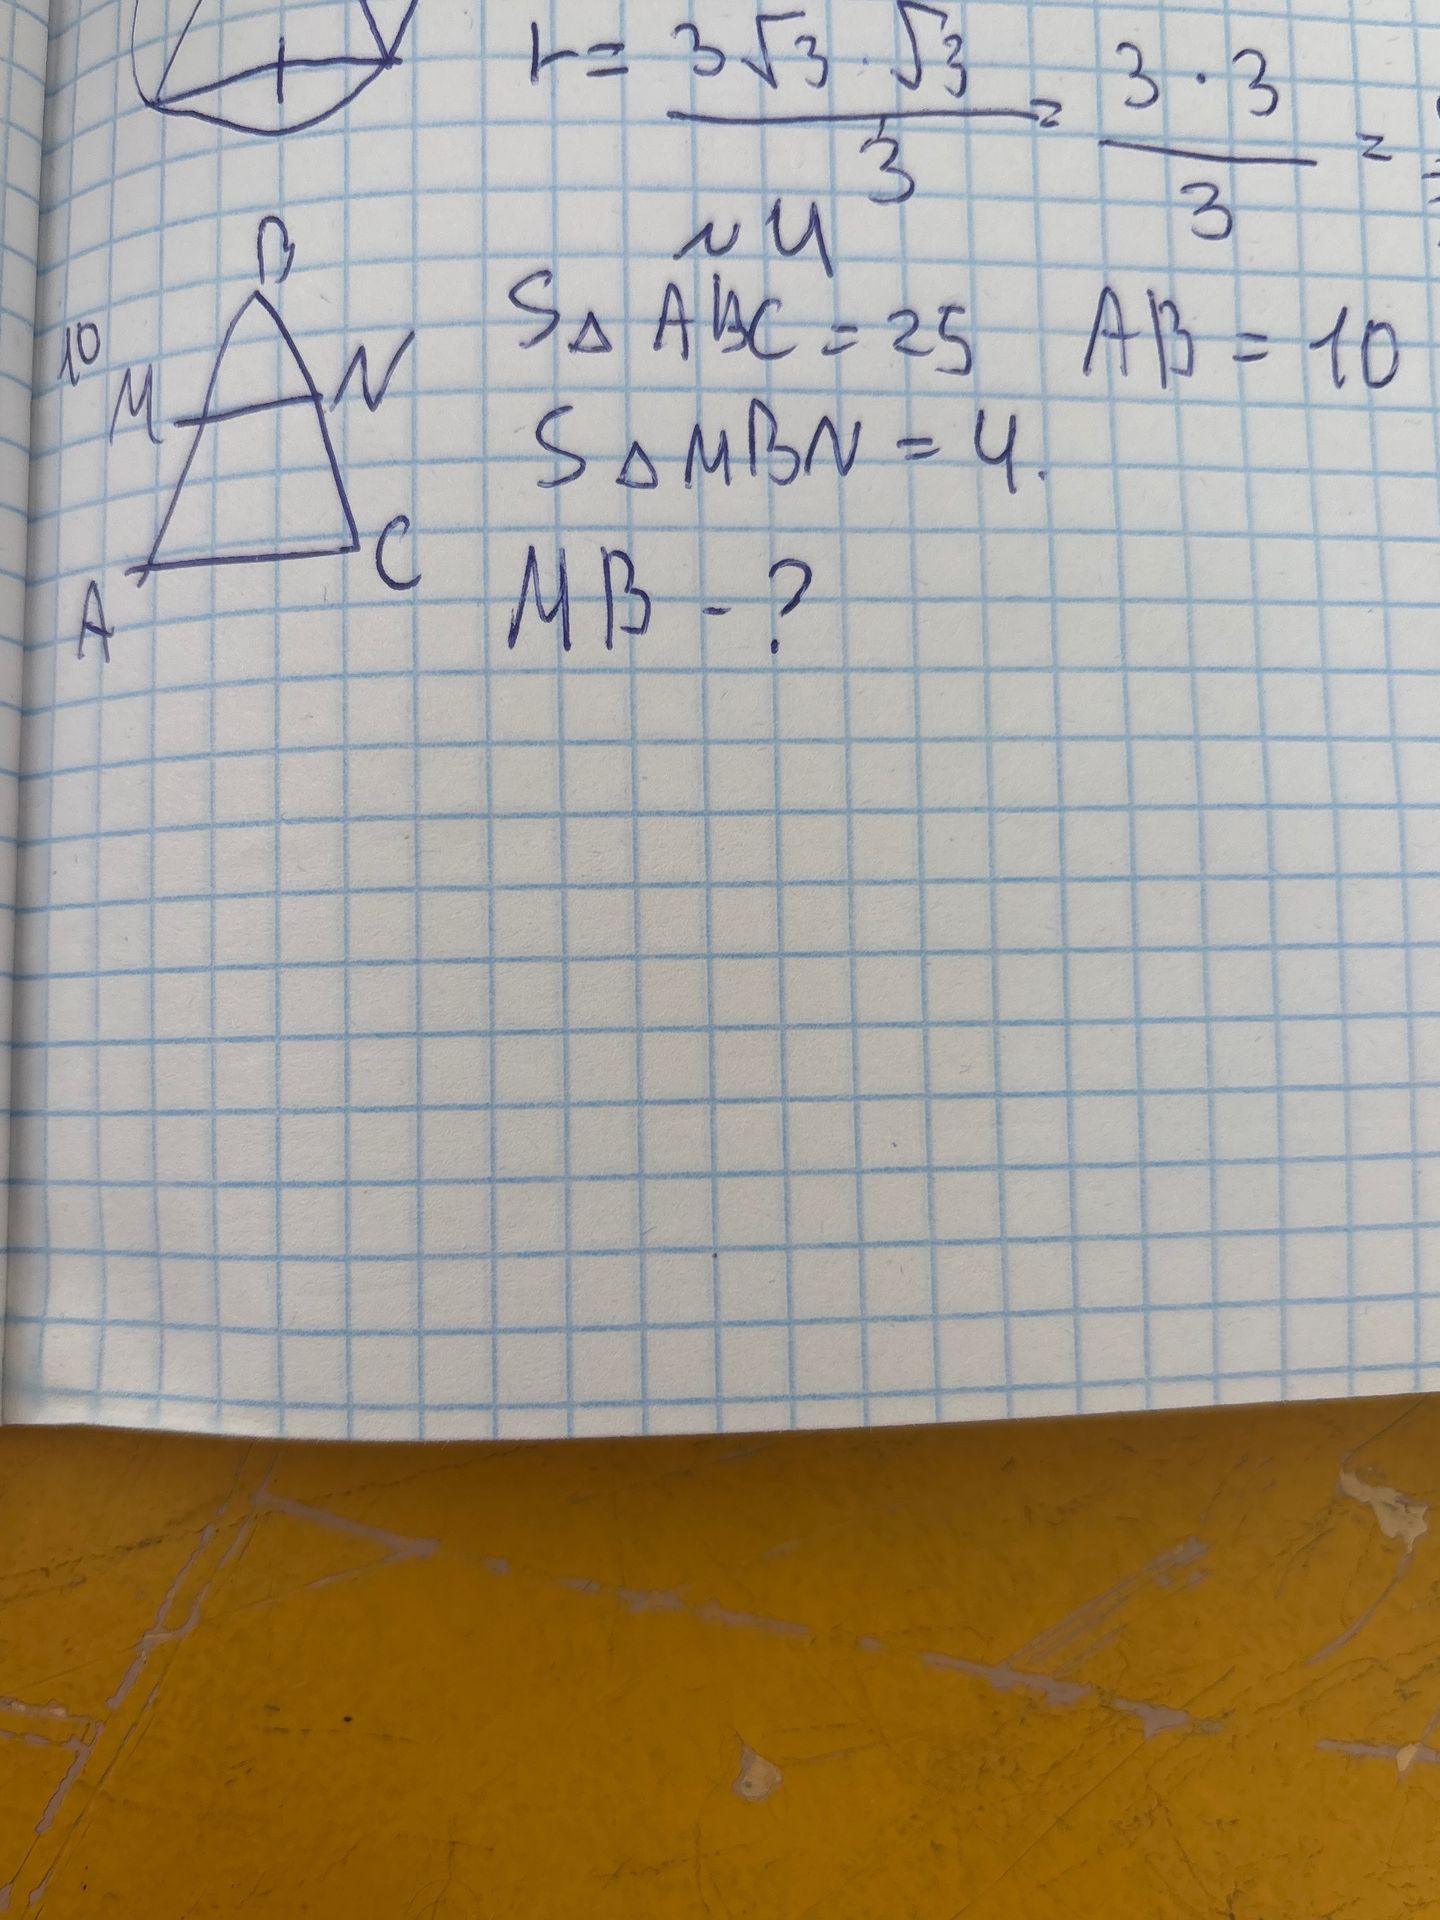 r = 3√3 · √3 / 3 = 3 · 3 / 3 =
~ 4
B
10
M
N
A
C
S△ ABC = 25 AB = 10
S△ MBN = 4.
MB - ?